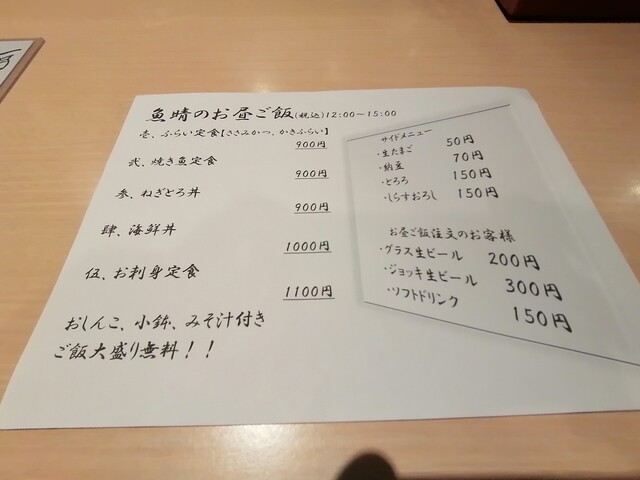 魚晴のお昼ご飯(税込)12:00～15:00
壱、ふらい定食【ささみかつ、かきふらい】
900円
弐、焼き魚定食
900円
参、ねぎとろ丼
900円
肆、海鮮丼
1000円
伍、お刺身定食
1100円
おしんこ、小鉢、みそ汁付き
ご飯大盛り無料！！
サイドメニュー
・生たまご 50円
・納豆 70円
・とろろ 150円
・しらすおろし 150円
お昼ご飯注文のお客様
・グラス生ビール 200円
・ジョッキ生ビール 300円
・ソフトドリンク 150円